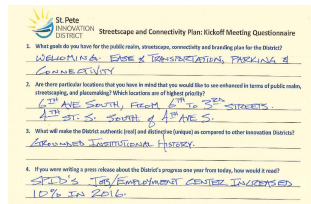 St. Pete
INNOVATION
DISTRICT
Streetscape and Connectivity Plan: Kickoff Meeting Questionnaire
1. What goals do you have for the public realm, streetscape, connectivity and branding plan for the District?
WELCOMING. EASE & TRANSPORTATION, PARKING &
CONNECTIVITY
2. Are there particular locations that you have in mind that you would like to see enhanced in terms of public realm,
streetscaping, and placemaking? Which locations are of highest priority?
6TH AVE SOUTH, FROM 6TH TO 3RD STREETS.
4TH ST. S. SOUTH of 4TH AVE S.
3. What will make the District authentic (real) and distinctive (unique) as compared to other Innovation Districts?
GROUNDED INSTITUTIONAL HISTORY.
4. If you were writing a press release about the District's progress one year from today, how would it read?
SPID'S JOBS/EMPLOYMENT CENTER INCREASED
10% IN 2016.